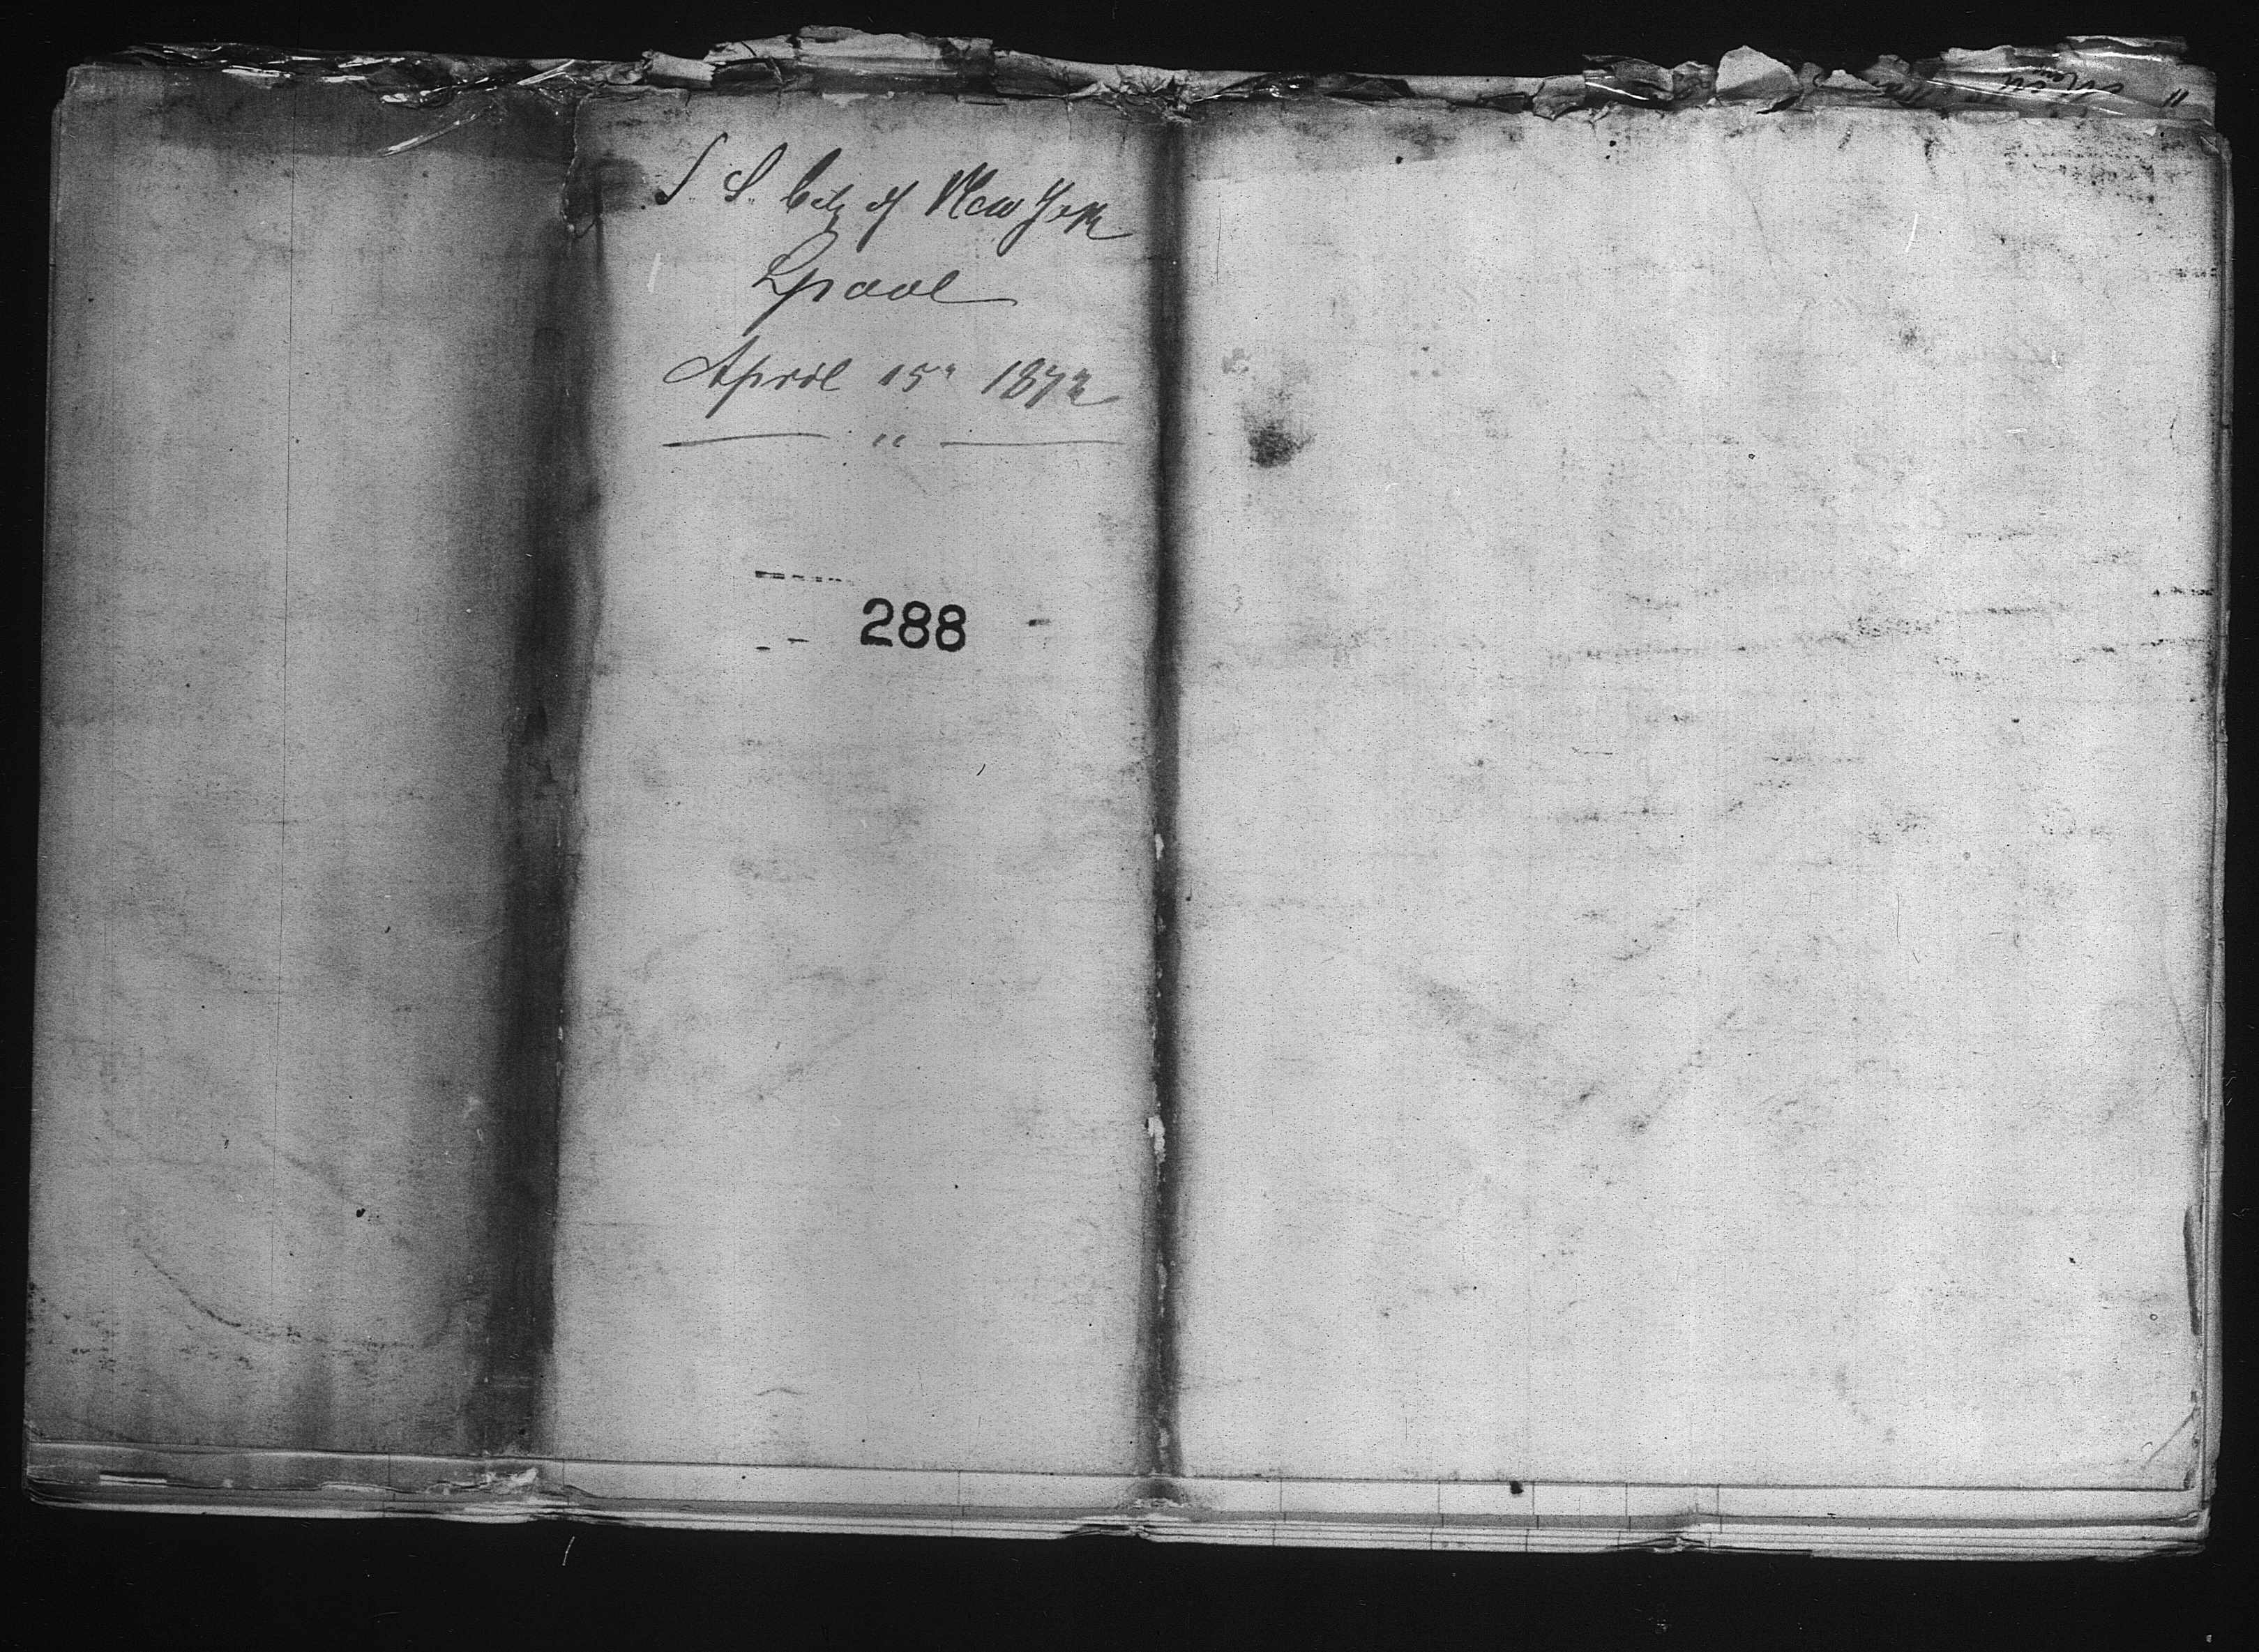 S. S. City of New York
Lpool
April 15" 1872
"
288